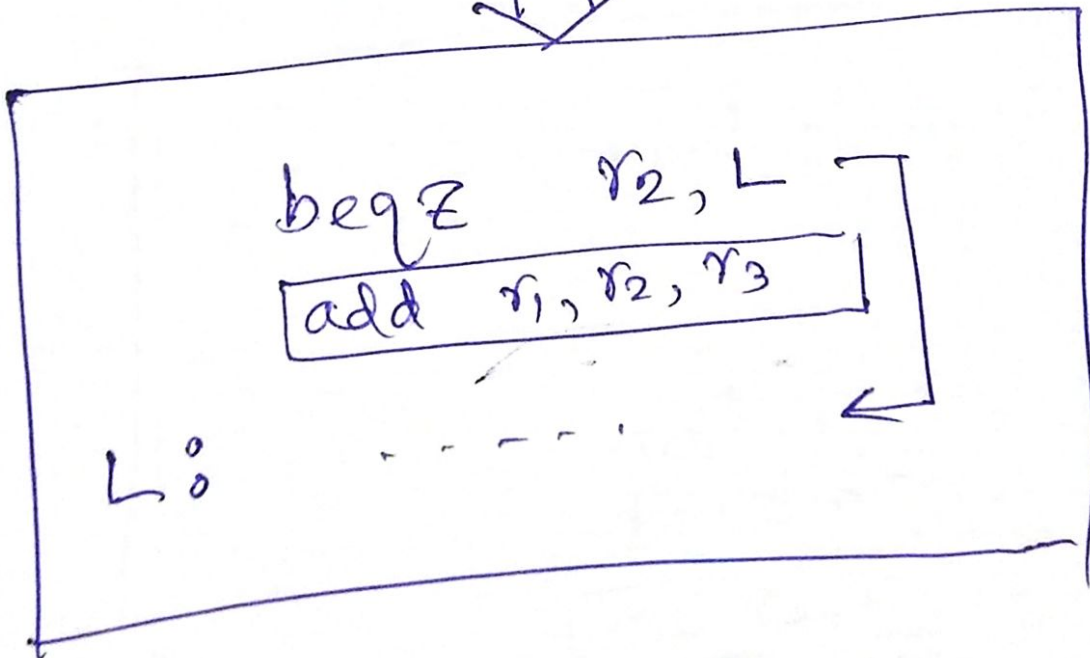 beqz r2, L
add r1, r2, r3
L: - - - - .